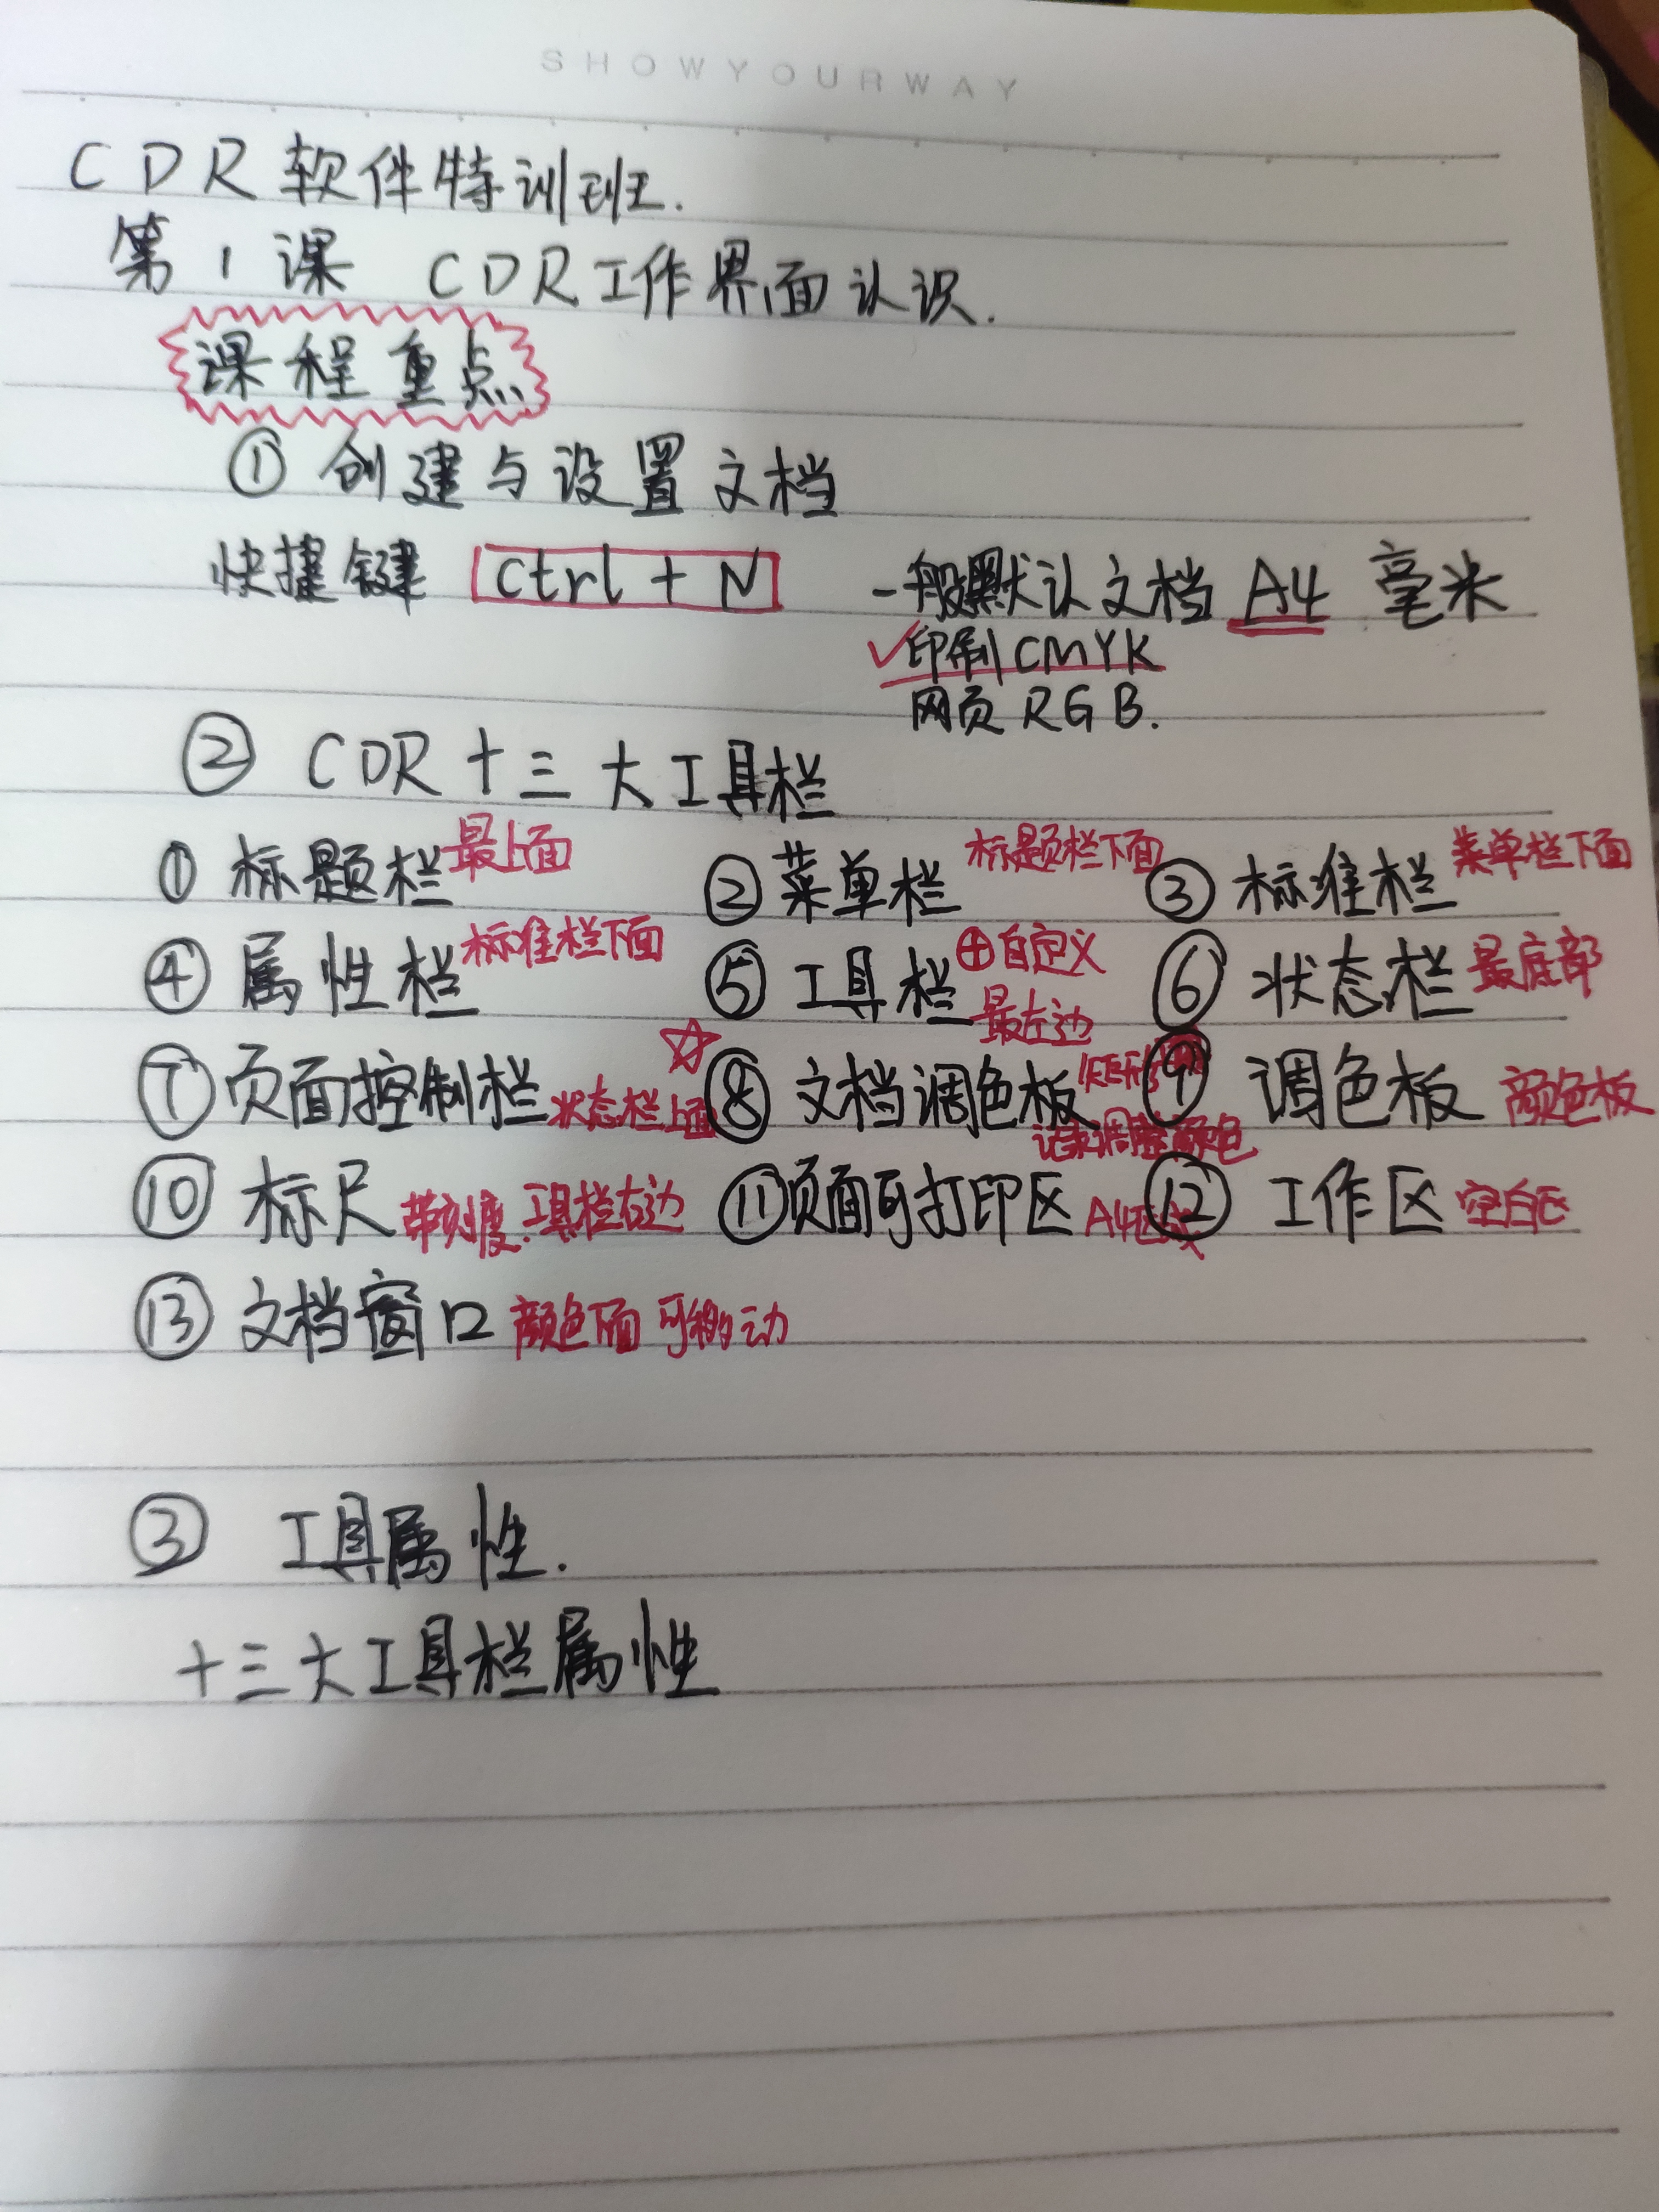 SHOWYOURWAY
CDR软件特训班.
第1课 CDR工作界面认识.
课程重点
① 创建与设置文档
快捷键 Ctrl + N 一般默认文档 A4 毫米
✓印刷 CMYK
网页 RGB.
② CDR十三大工具栏
① 标题栏 最上面 ② 菜单栏 标题栏下面 ③ 标准栏 菜单栏下面
④ 属性栏 标准栏下面 ⑤ 工具栏 ⊕自定义 最左边 ⑥ 状态栏 最底部
⑦ 页面控制栏 状态栏上面 ☆ ⑧ 文档调色板 记录调整颜色 ⑨ 调色板 颜色板
⑩ 标尺 带刻度.工具栏右边 ⑪ 页面可打印区 A4 ⑫ 工作区 空白区
⑬ 文档窗口 颜色下面 可移动
③ 工具属性.
十三大工具栏属性